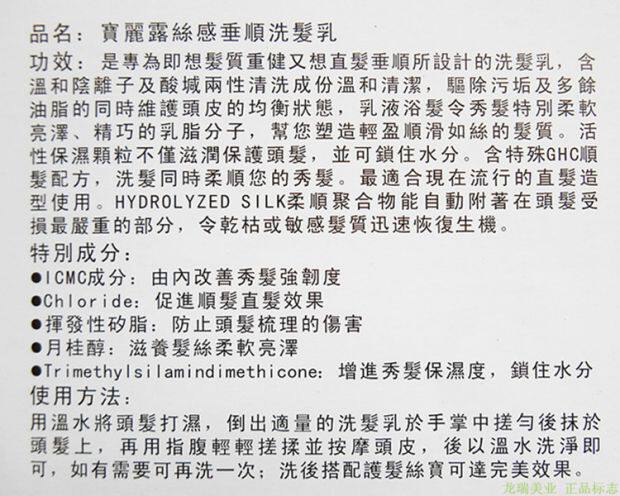 品名：寶麗露絲感垂順洗髮乳
功效：是專為即想髮質重健又想直髮垂順所設計的洗髮乳，含
溫和陰離子及酸堿兩性清洗成份溫和清潔，驅除污垢及多餘
油脂的同時維護頭皮的均衡狀態，乳液浴髮令秀髮特別柔軟
亮澤、精巧的乳脂分子，幫您塑造輕盈順滑如絲的髮質。活
性保濕顆粒不僅滋潤保護頭髮，並可鎖住水分。含特殊GHC順
髮配方，洗髮同時柔順您的秀髮。最適合現在流行的直髮造
型使用。HYDROLYZED SILK柔順聚合物能自動附著在頭髮受
損最嚴重的部分，令乾枯或敏感髮質迅速恢復生機。
特別成分：
●ICMC成分：由內改善秀髮強韌度
●Chloride：促進順髮直髮效果
●揮發性矽脂：防止頭髮梳理的傷害
●月桂醇：滋養髮絲柔軟亮澤
●Trimethylsilamindimethicone：增進秀髮保濕度，鎖住水分
使用方法：
用溫水將頭髮打濕，倒出適量的洗髮乳於手掌中搓勻後抹於
頭髮上，再用指腹輕輕搓揉並按摩頭皮，後以溫水洗淨即
可，如有需要可再洗一次；洗後搭配護髮絲寶可達完美效果。
龙瑞美业 正品标志